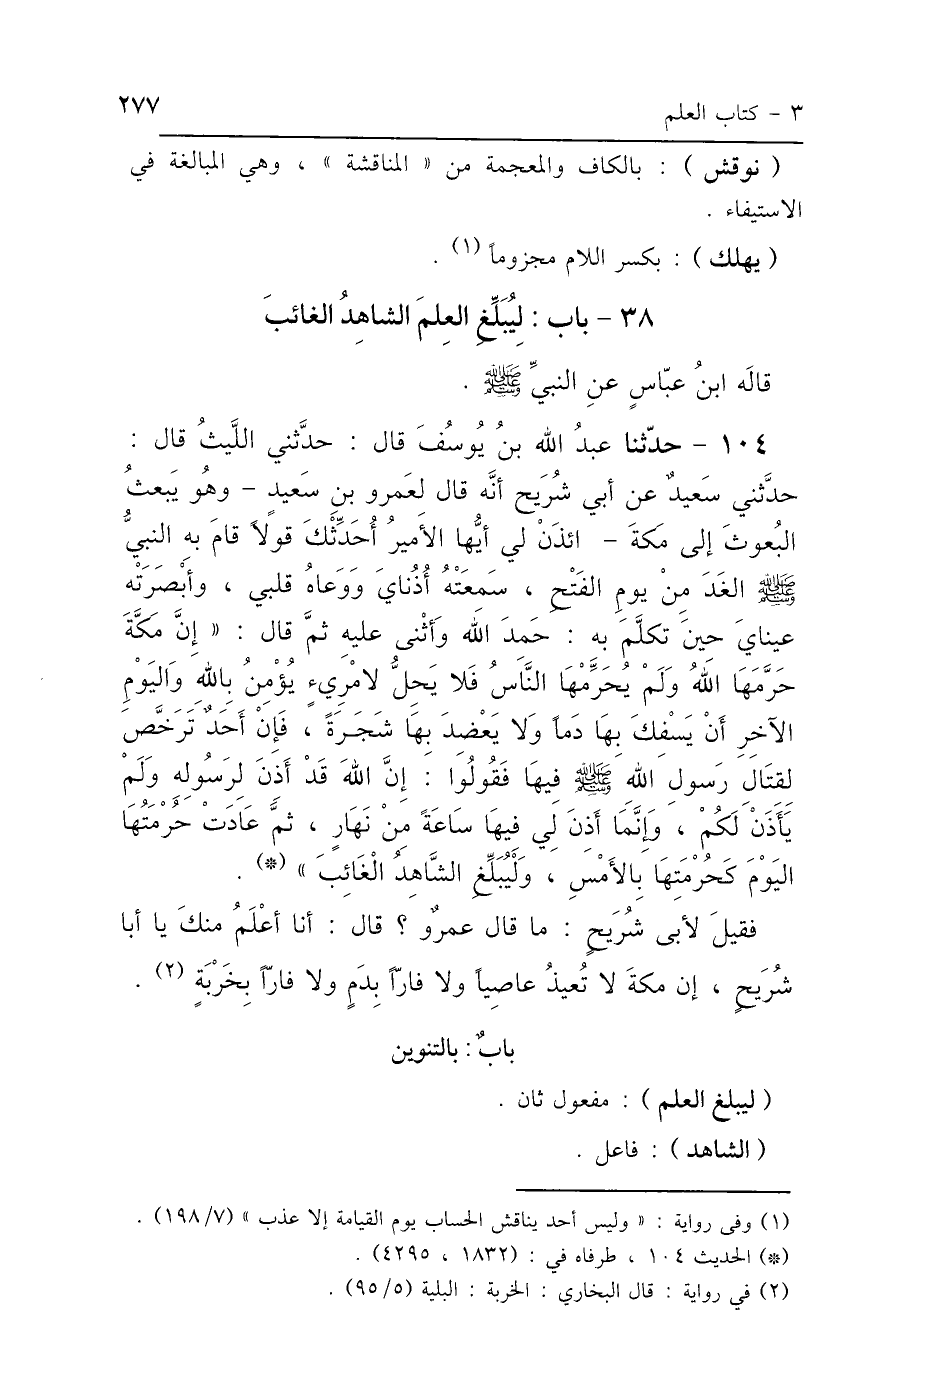 ٣ - كتاب العلم ٢٧٧
( نوقش ) : بالكاف والمعجمة من « المناقشة » ، وهي المبالغة في
الاستيفاء .
( يهلك ) : بكسر اللام مجزوماً (١) .
٣٨ - باب : لِيُبَلِّغِ العِلمَ الشاهِدُ الغائبَ
قالَه ابنُ عبّاسٍ عنِ النبيِّ ﷺ .
١٠٤ - حدّثنا عبدُ الله بنُ يُوسُفَ قال : حدَّثني اللَّيثُ قال :
حدَّثني سَعيدٌ عن أبي شُرَيح أنَّه قال لعَمرو بنِ سَعيدٍ - وهُو يَبعثُ
البُعوثَ إلى مَكةَ - ائذَنْ لي أيُّها الأميرُ أُحَدِّثْكَ قولاً قامَ بهِ النبيُّ
ﷺ الغَدَ مِنْ يومِ الفَتْحِ ، سَمِعَتْهُ أُذُنايَ وَوَعاهُ قلبي ، وأبْصَرَتْه
عينايَ حينَ تكلَّمَ به : حَمِدَ الله وَأثْنى عليهِ ثمَّ قال : « إنَّ مَكَّةَ
حَرَّمَهَا اللهُ وَلَمْ يُحَرِّمْهَا النَّاسُ فَلا يَحِلُّ لامْرِيءٍ يُؤْمِنُ بِاللهِ وَاليَوْمِ
الآخرِ أنْ يَسْفِكَ بِهَا دَماً وَلا يَعْضِدَ بِهَا شَجَرَةً ، فَإنْ أَحَدٌ تَرَخَّصَ
لقتَالِ رَسولِ الله ﷺ فيهَا فَقُولُوا : إنَّ اللهَ قَدْ أَذنَ لرَسُوله وَلَمْ
يَأذَنْ لَكُمْ ، وَإنَّمَا أذِنَ لِي فيهَا سَاعَةً مِنْ نَهَارٍ ، ثمَّ عَادَتْ حُرْمَتُهَا
اليَوْمَ كَحُرْمَتِهَا بِالأمْسِ ، وَلْيُبَلِّغِ الشَّاهِدُ الْغَائِبَ » (*) .
فقيلَ لأبى شُرَيحٍ : ما قال عمروٌ ؟ قال : أنا أعْلَمُ منكَ يا أبا
شُرَيحٍ ، إن مكةَ لا تُعيذُ عاصِياً ولا فارّاً بِدَمٍ ولا فارّاً بِخَرْبَةٍ (٢) .
بابٌ : بالتنوين
( ليبلغ العلم ) : مفعول ثان .
( الشاهد ) : فاعل .
(١) وفى رواية : « وليس أحد يناقش الحساب يوم القيامة إلا عذب » (١٩٨/٧) .
(*) الحديث ١٠٤ ، طرفاه في : (١٨٣٢ ، ٤٢٩٥) .
(٢) في رواية : قال البخاري : الخربة : البلية (٩٥/٥) .